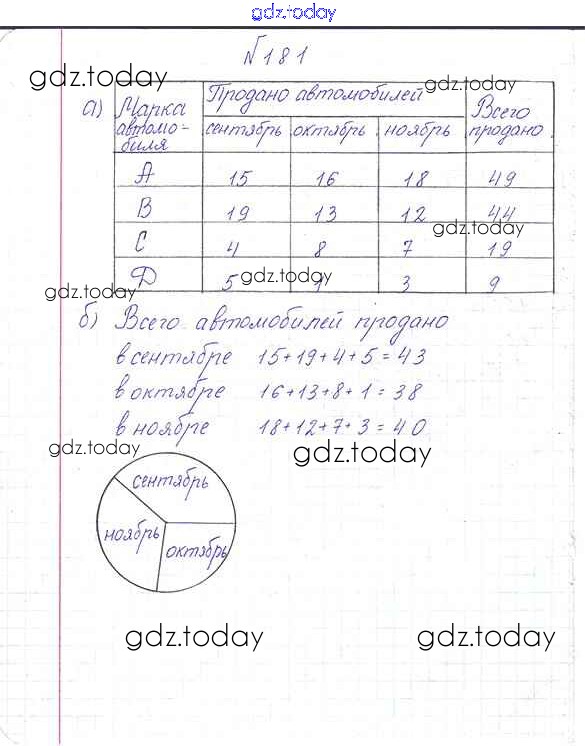 gdz.today
№181
gdz.today
gdz.today
а) Марка автомо-биля Продано автомобилей Всего продано
сентябрь октябрь ноябрь
А 15 16 18 49
В 19 13 12 44
gdz.today
С 4 8 7 19
Д 5 1 3 9
gdz.today
gdz.today
б) Всего автомобилей продано
в сентябре 15+19+4+5=43
в октябре 16+13+8+1=38
в ноябре 18+12+7+3=40
gdz.today
gdz.today
сентябрь
ноябрь
октябрь
gdz.today
gdz.today